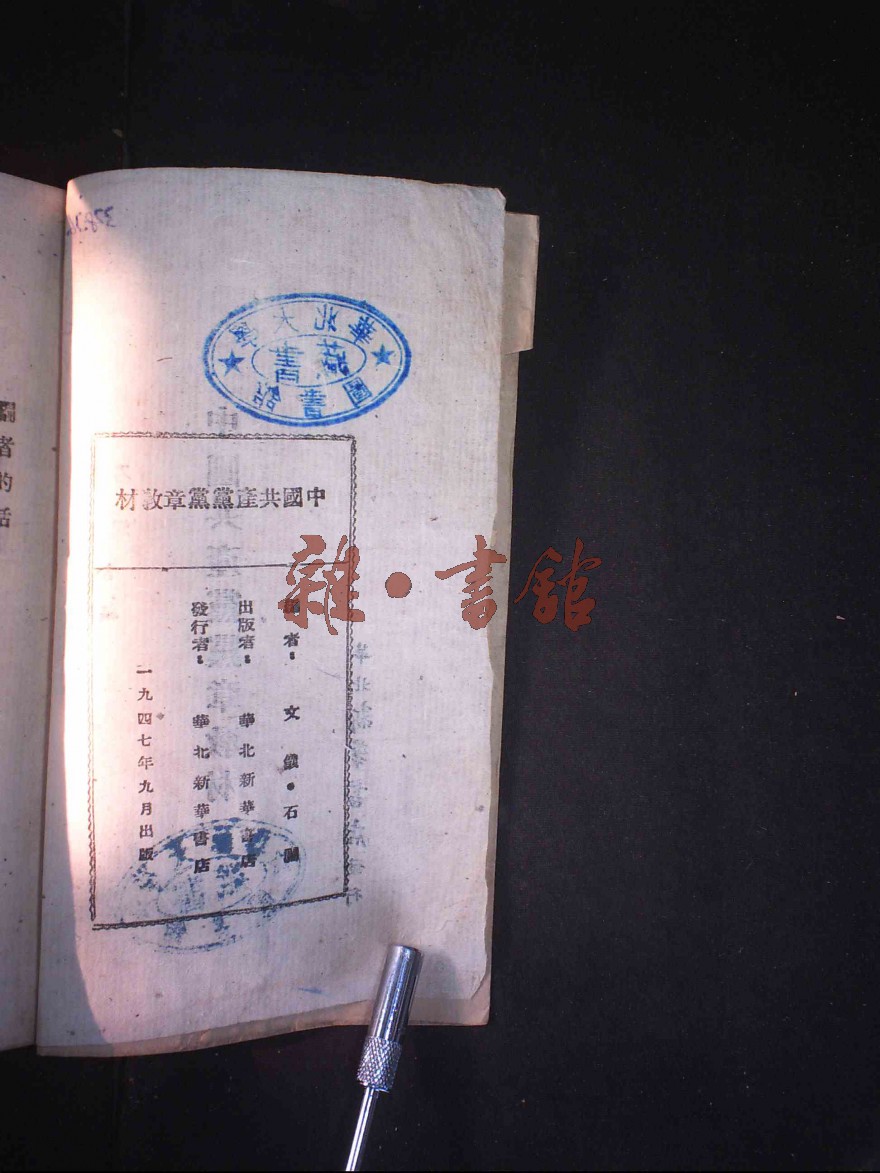 中國共產黨黨章教材
者：文 •石
出版者：華北新華書店
發行者：華北新華書店
一九四七年九月出版
華北大學
圖書館
藏書
雜•書館
者
的
話